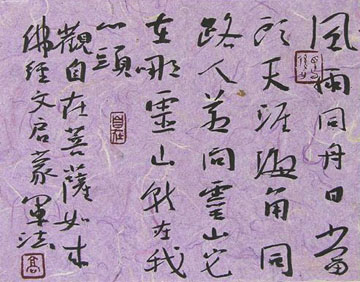 風雨同舟日當
頭天涯海角同
路人若問靈山它
在哪靈山就在我
心頭
自在
觀自在菩薩如來
佛經文启蒙法
高